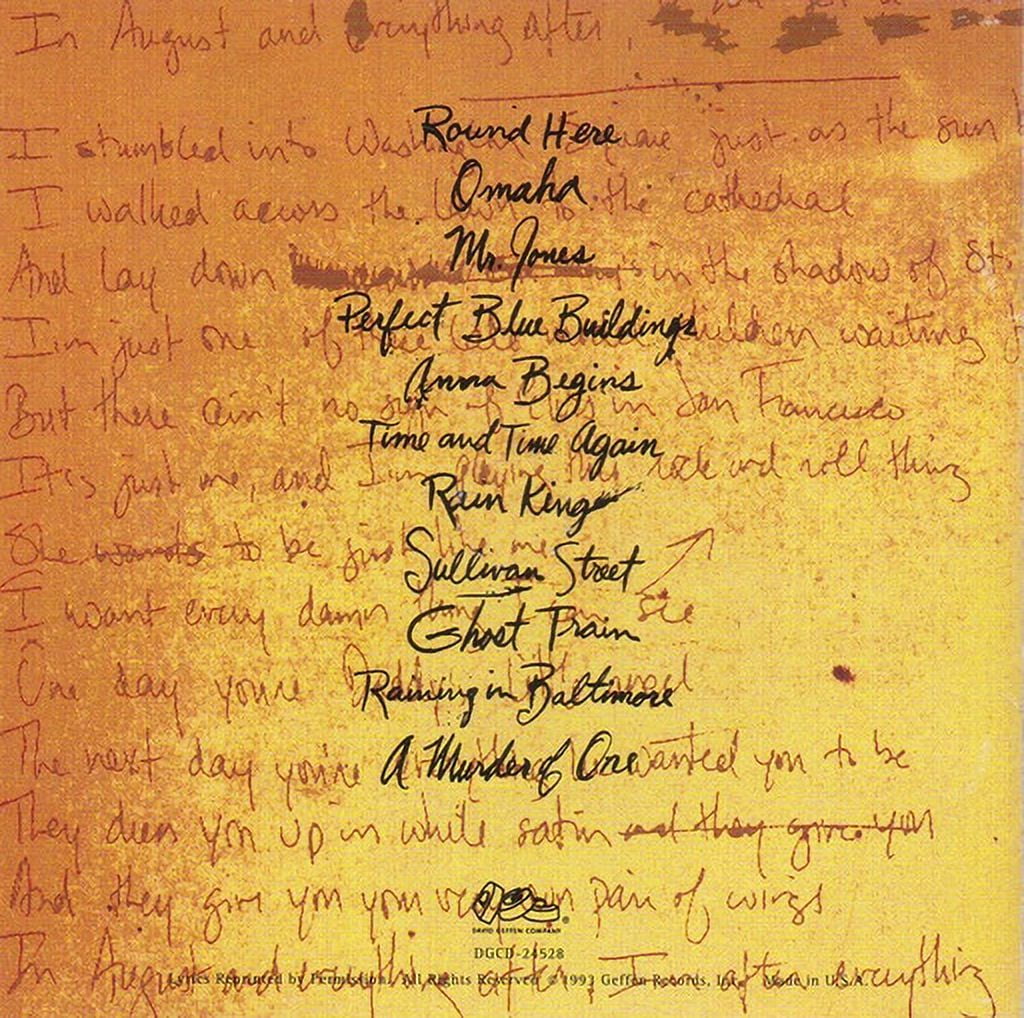 In August and Everything After,
I stumbled into Washington Square just as the sun
Round Here
I walked across the lawn to the cathedral
Omaha
And lay down in the shadow of St.
Mr. Jones
I'm just one of these children waiting
Perfect Blue Buildings
Anna Begins
But there ain't no in San Francisco
Time and Time Again
It's just me, and I'm playing this rock and roll thing
Rain King
She wants to be just like me
Sullivan Street
I want every damn thing I can see
Ghost Train
One day you're
Raining in Baltimore
The next day you're wanted you to be
A Murder of One
They dress you up in white satin and they give you
And they give you your very own pair of wings
DAVID GEFFEN COMPANY
DGCD-24528
In August and everything after, I after everything
Lyrics Reprinted by Permission. All Rights Reserved ©1993 Geffen Records, Inc. Made in U.S.A.